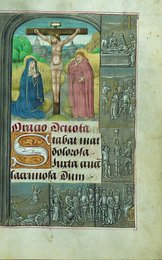 Oracio Devota
Stabat mat
dolorosa
iuxta cruc
lacrimosa Dum